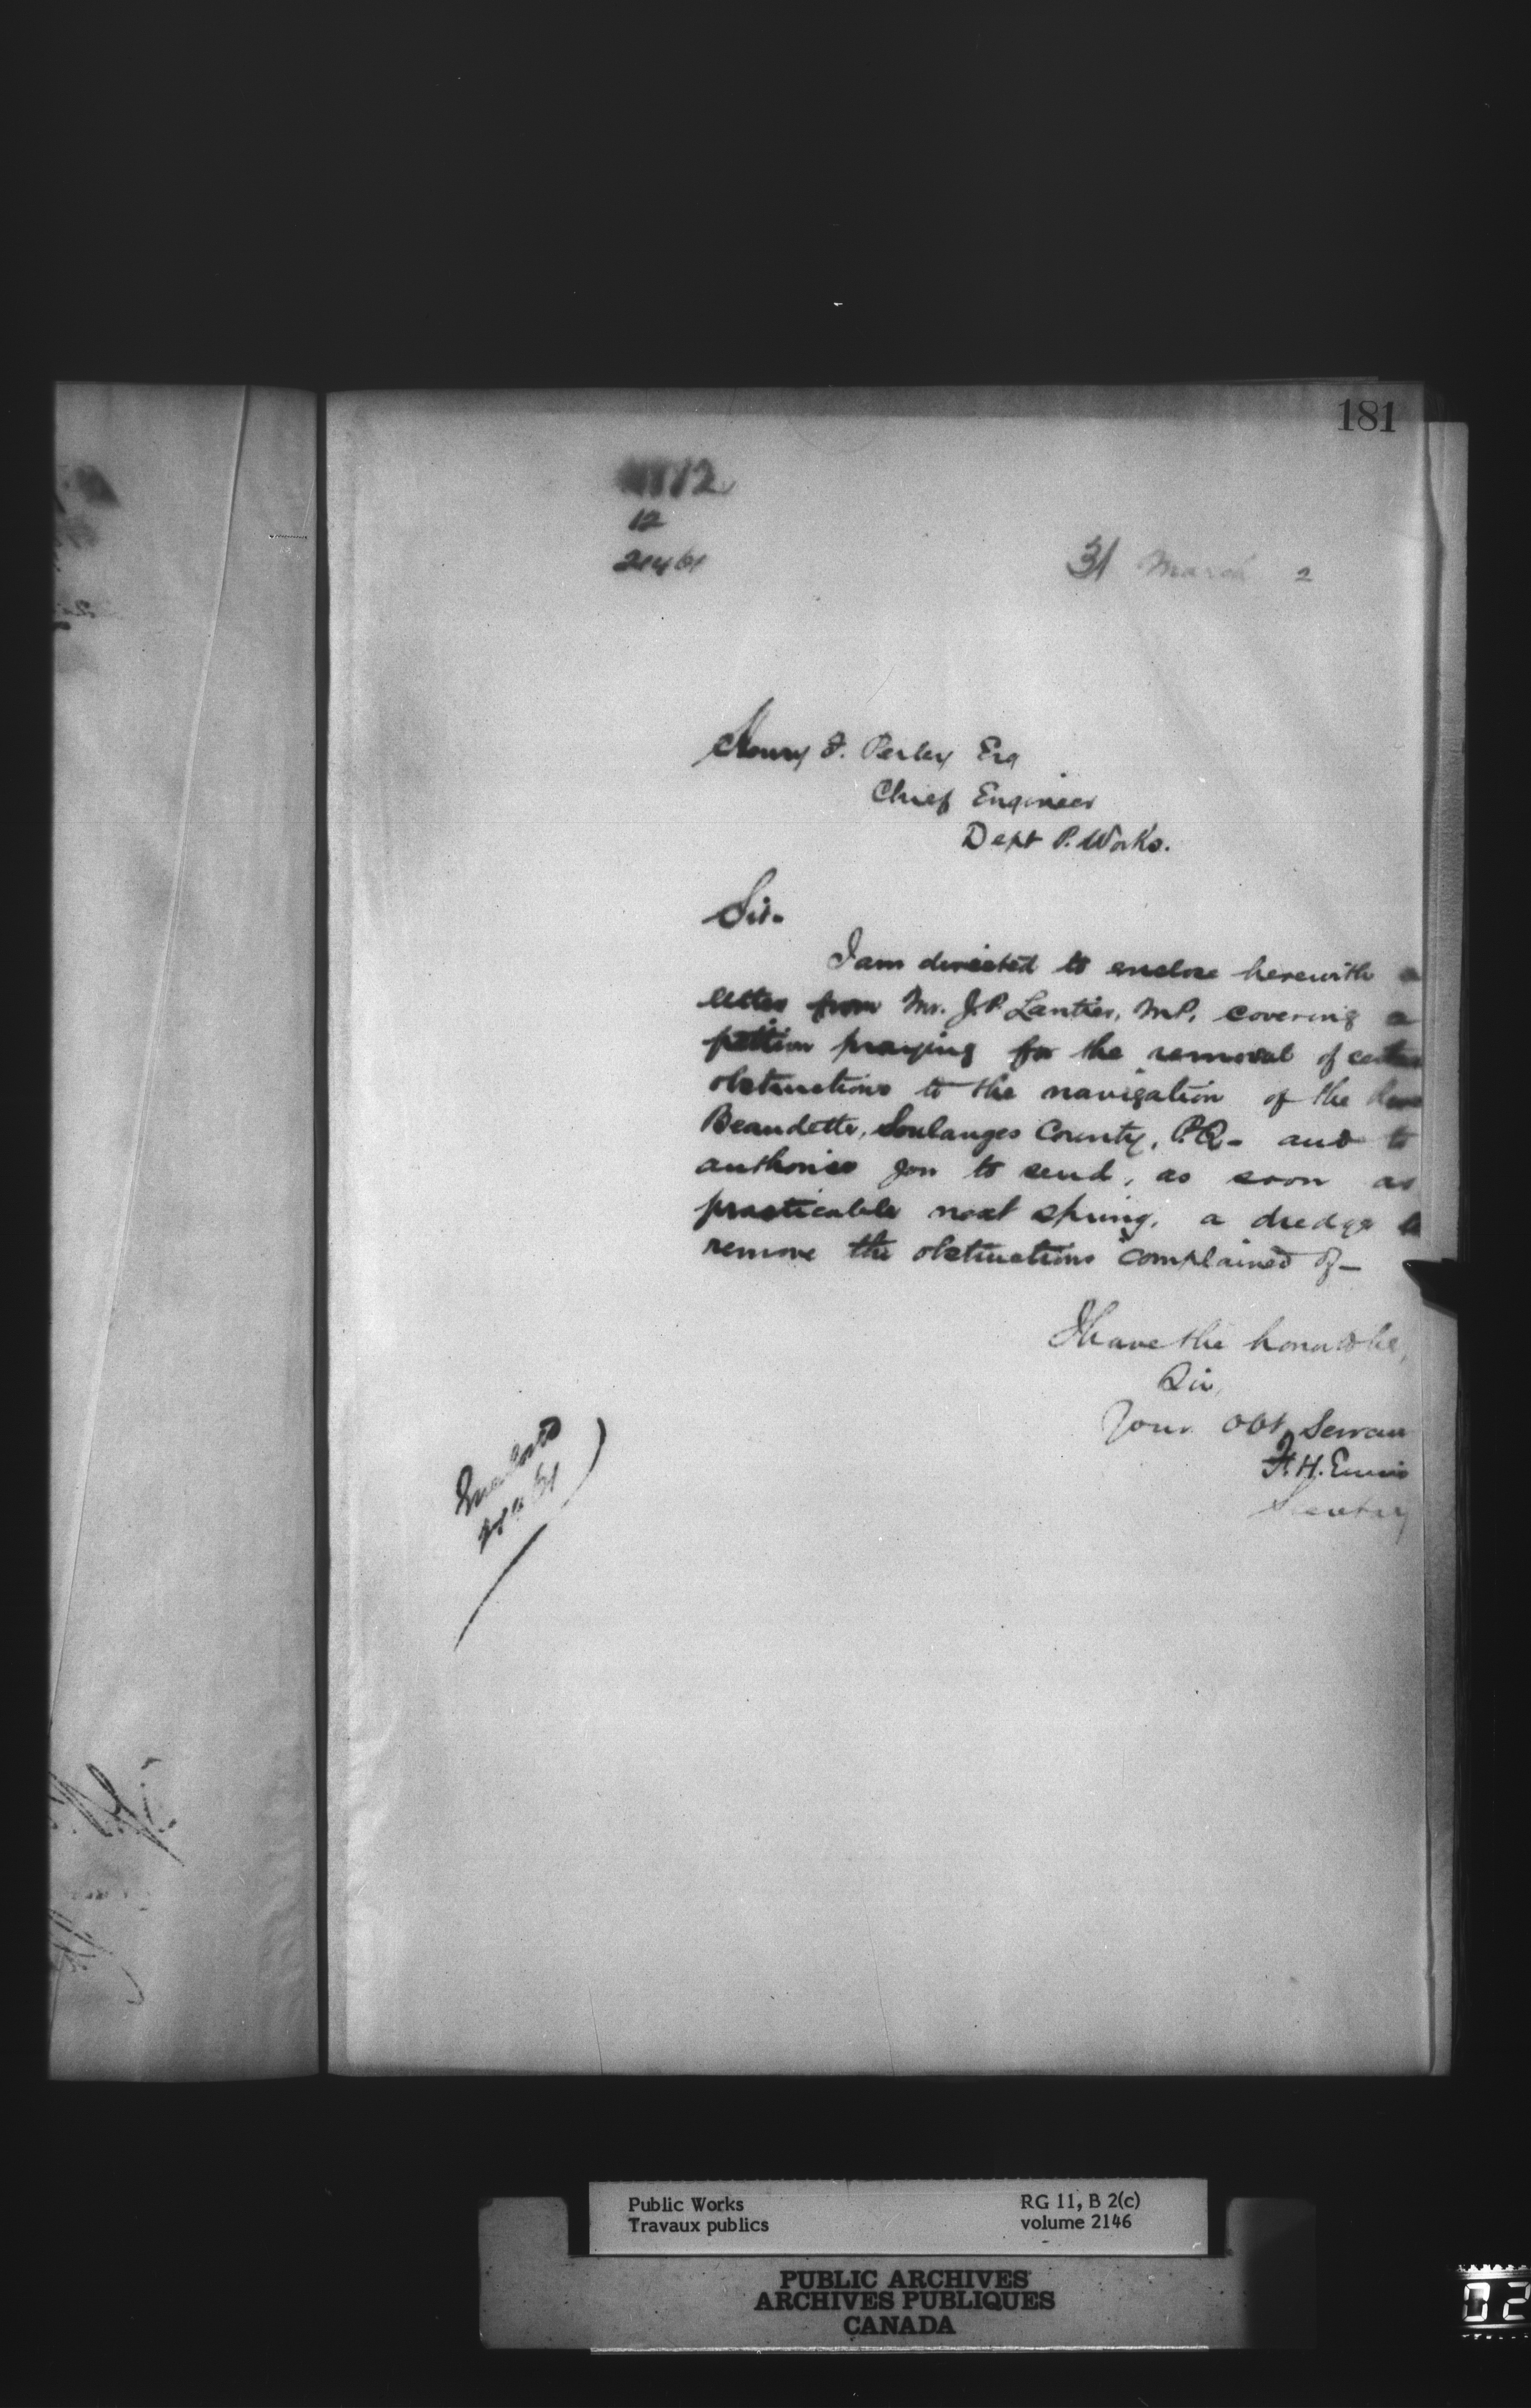 181
12
21461
31 March 2
Henry F. Perley Esq
Chief Engineer
Dept P. Works.
Sir.
I am directed to enclose herewith a
letter from Mr. J.P. Lantier, M.P. covering a
petition praying for the removal of certain
obstructions to the navigation of the
Beaudette, Soulanges County, P.Q. - and to
authorise you to send, as soon as
practicable next spring, a dredge to
remove the obstructions complained of -
I have the honor to be,
Sir,
Your Obt Servan
F. H. Ennis
Secretary
21461
Public Works
Travaux publics
RG 11, B 2(c)
volume 2146
PUBLIC ARCHIVES
ARCHIVES PUBLIQUES
CANADA
02